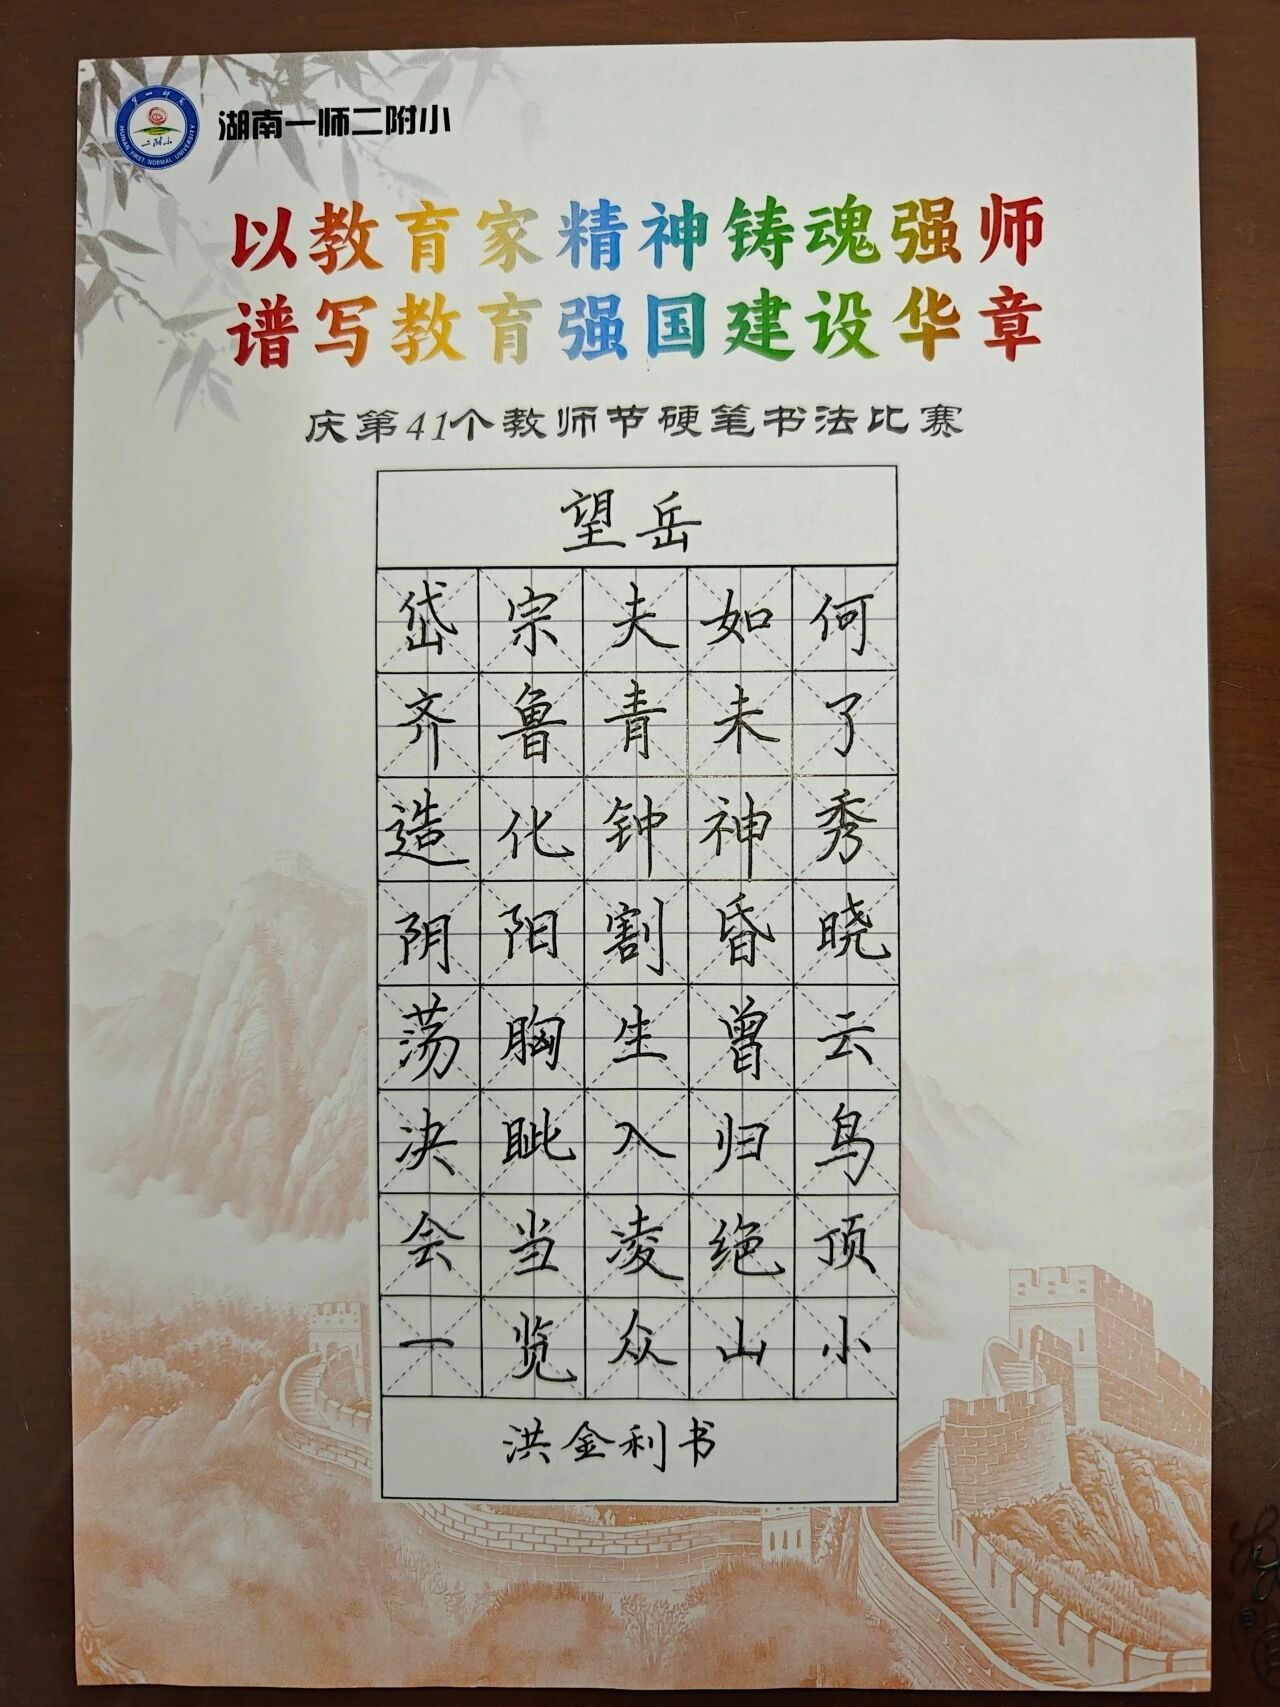 湖南一师二附小
第一师范
二附小
HUNAN FIRST NORMAL UNIVERSITY
以教育家精神铸魂强师
谱写教育强国建设华章
庆第41个教师节硬笔书法比赛
望岳
岱宗夫如何
齐鲁青未了
造化钟神秀
阴阳割昏晓
荡胸生曾云
决眦入归鸟
会当凌绝顶
一览众山小
洪金利书